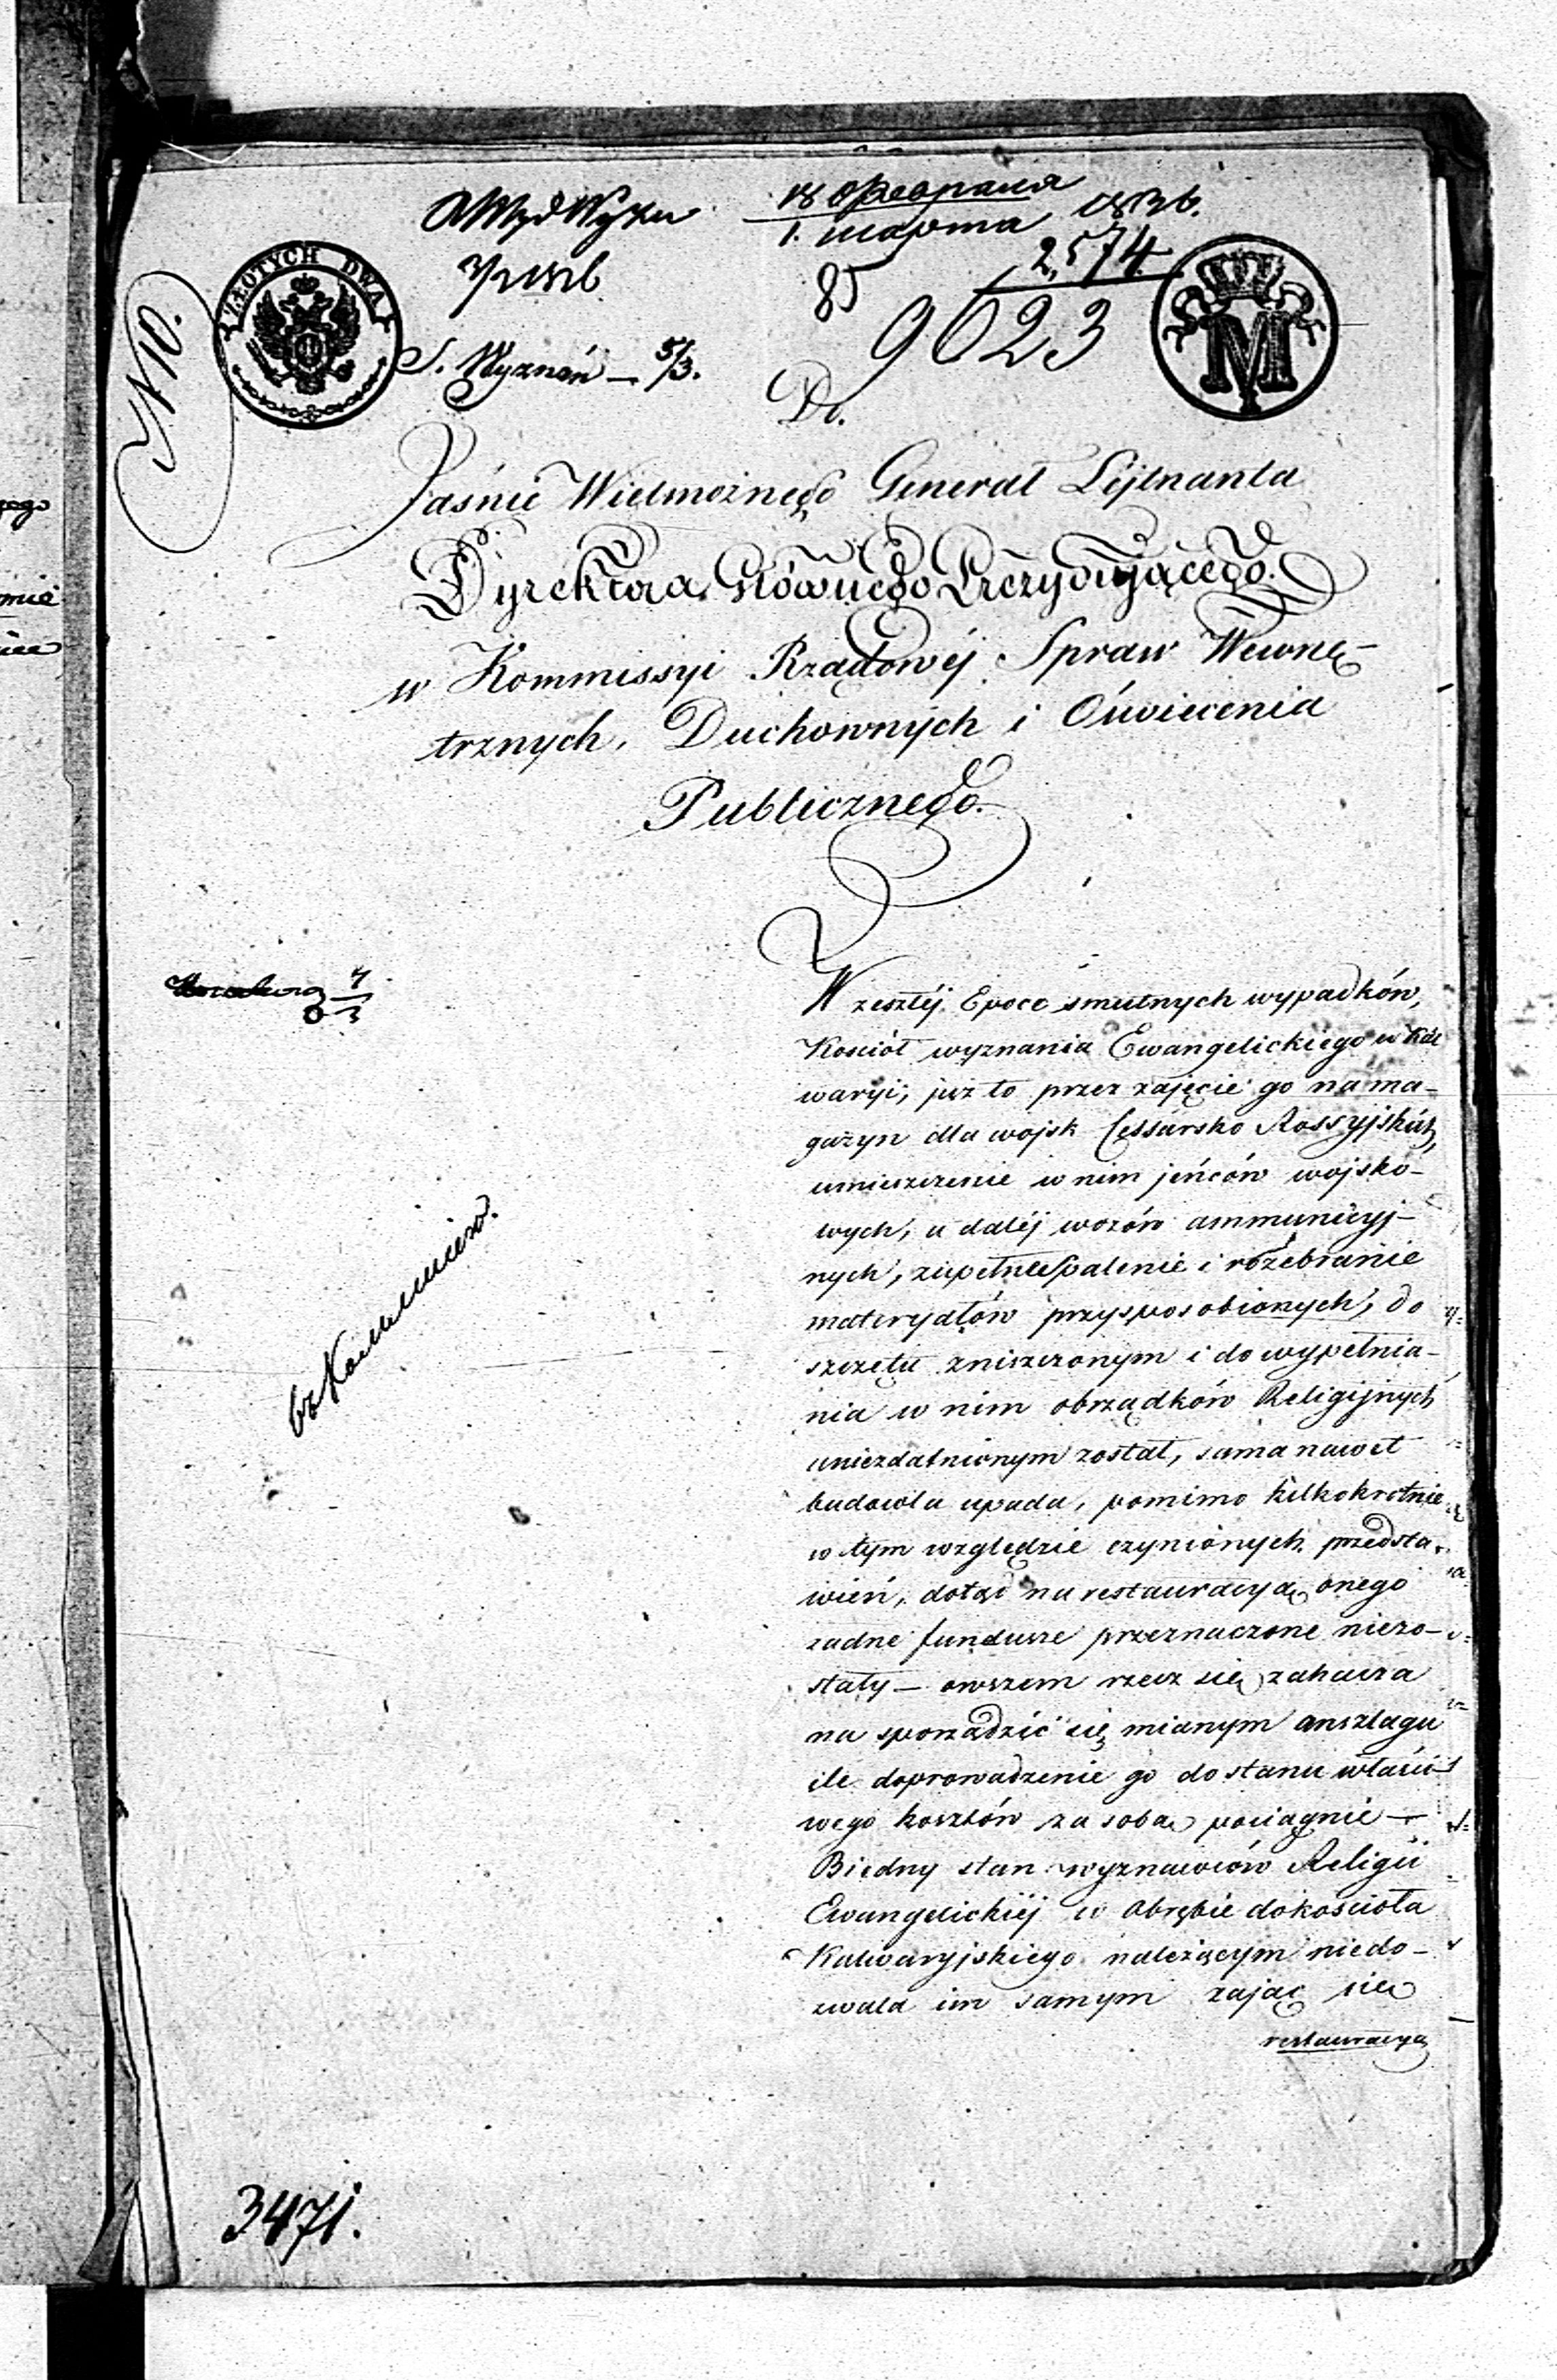 18 Февраля
1. Марта 1836.
2,574
85
9623
N 10.
ZŁOTYCH DWA
M
S. Wyznań — 5/3.
Do.
Jaśnie Wielmożnego Generał Lejtnanta
Dyrektora Głównego Prezydującego
w Kommissyi Rządowéj Spraw Wewnę-
trznych, Duchownych i Oświecenia
Publicznego.
W zeszłéj Epoce smutnych wypadków,
Kościół wyznania Ewangelickiego w Kal
waryi, już to przez zajęcie go na ma-
gazyn dla wojsk Cessarsko Rossyjskich,
umieszczenie w nim jeńców wojsko-
wych, a daléj wozów ammunicyj-
nych, zupełne spalenie i rozebranie
materyałów przysposobionych, do
szczętu zniszczonym i do wypełnia-
nia w nim obrządków Religijnych
uniezdatnionym został, sama nawet
budowla upada, pomimo kilkokrotnie
w tym względzie czynionych przedsta-
wień, dotąd na restauracyą onego
żadne fundusze przeznaczone niezo-
stały — owszem rzecz się zahacza
na sporządzić się mianym anszlagu
ile doprowadzenie go do stanu właści-
wego kosztów za sobą pociągnie —
Biedny stan wyznawców Religii
Ewangelickiéj w obrębie do kościoła
Kalwaryjskiego należącym niedo-
zwala im samym zająć się
restauracyą
3471.